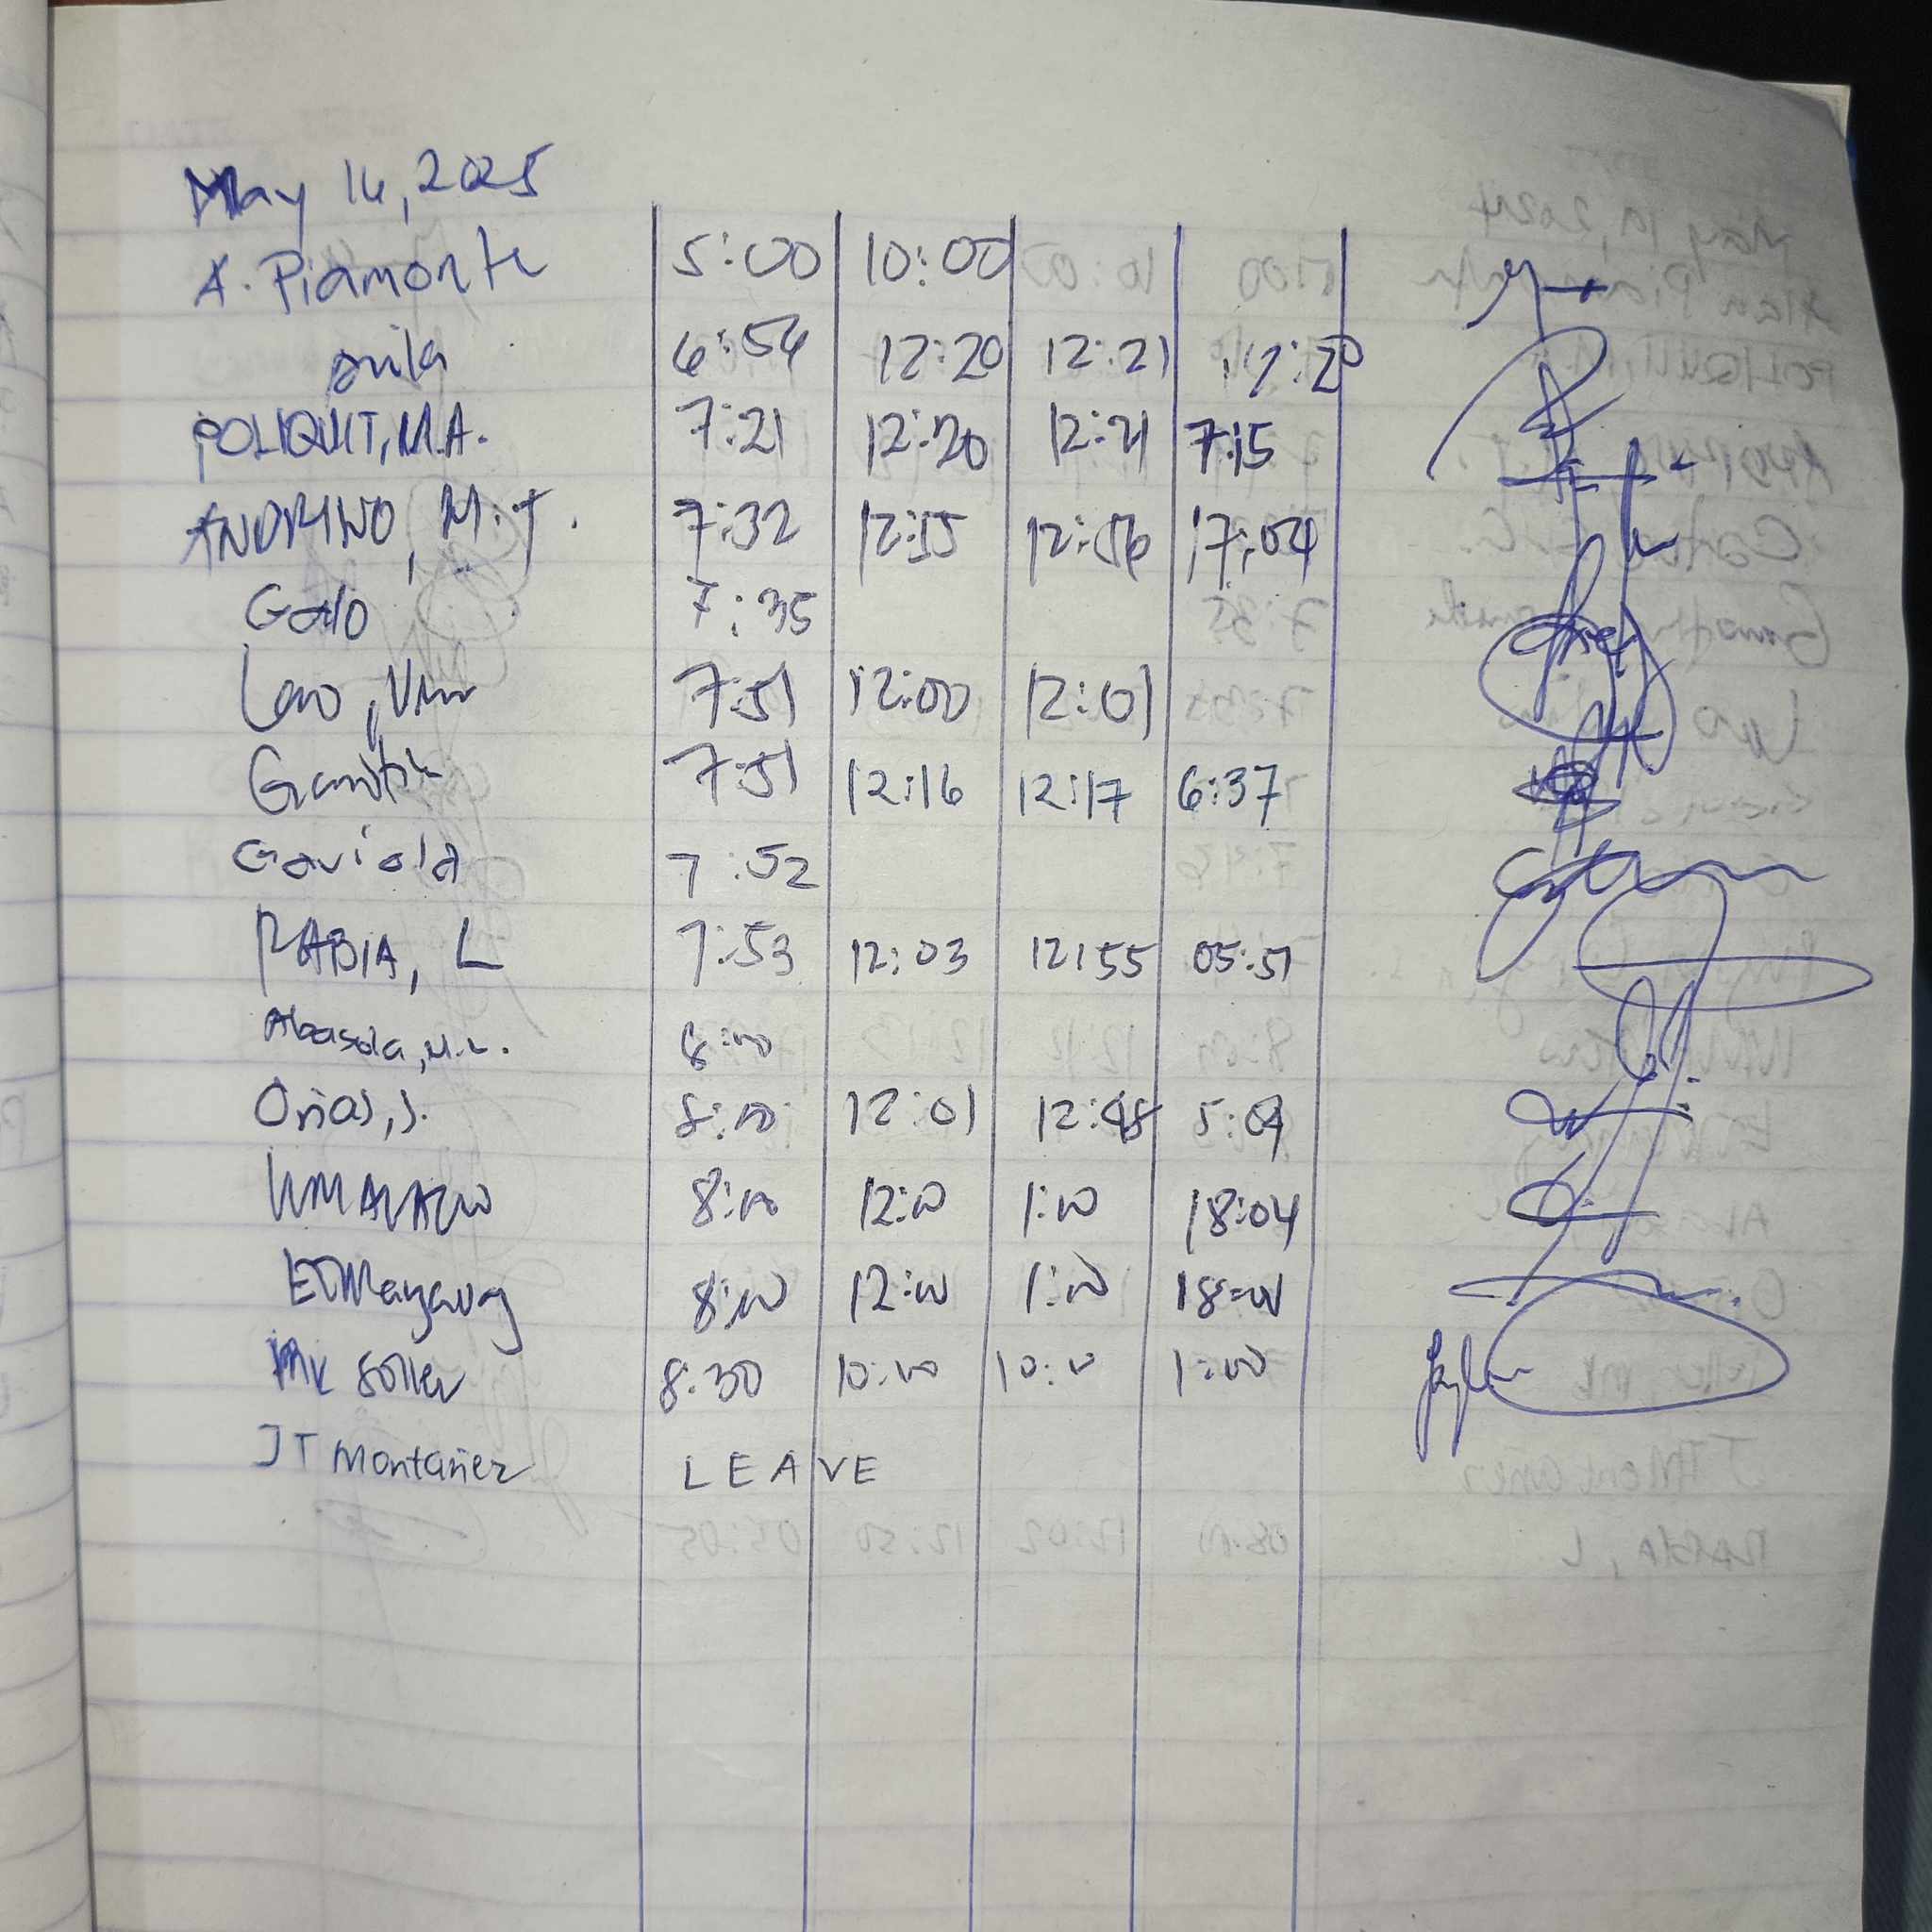 May 16, 2025
A. Piamonte 5:00 10:00
avila 6:54 12:20 12:21 17:20
POLIQUIT, M.A. 7:21 12:20 12:21 7:15
ANDRINO, M.J. 7:32 12:55 12:56 17:04
Gallo 7:35
Lao, 7:51 12:00 12:01
7:51 12:16 12:17 6:37
Gaviola 7:52
RABIA, L 7:53 12:03 12:55 05:51
Abasola, M.L. 8:00
Orias, J. 8:00 12:01 12:48 5:09
8:00 12:00 1:00 18:04
8:00 12:00 1:00 18:01
MK Soller 8:30 10:00 10:00 1:00
JT Montañez LEAVE